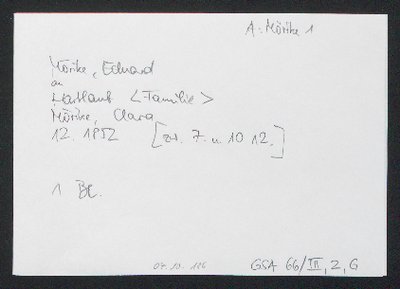 A: Mörike 1
Mörike, Eduard
an
Hartlaub <Familie>
Mörike, Clara
12. 1852 [zw. 7. u. 10.12.]
1 Bl.
07. 10. 186
GSA 66/III, 2, 6